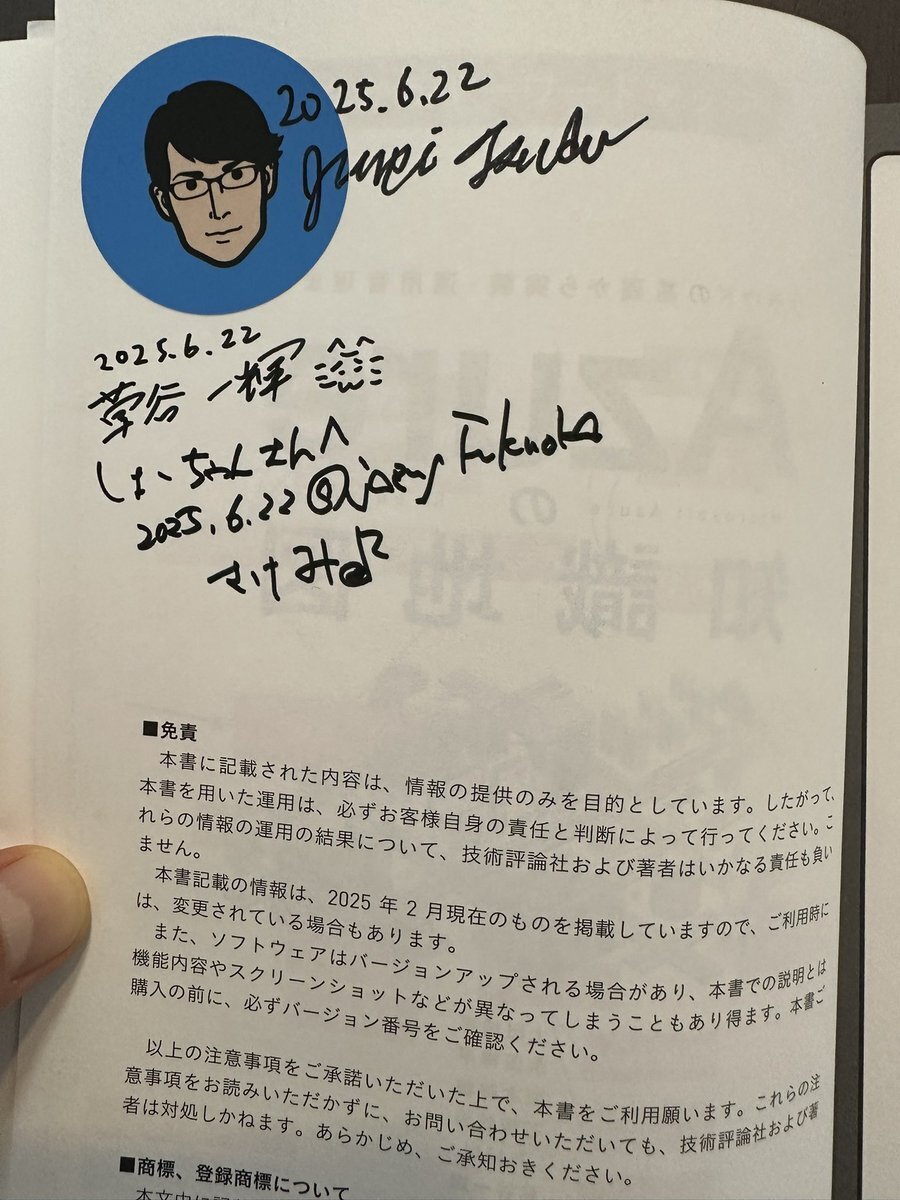 2025.6.22
Junpei Tsubu
2025.6.22
草谷 一輝
しょーちゃんさんへ
2025.6.22 @jazug Fukuoka
さけみ
■免責
本書に記載された内容は、情報の提供のみを目的としています。したがって、
本書を用いた運用は、必ずお客様自身の責任と判断によって行ってください。こ
れらの情報の運用の結果について、技術評論社および著者はいかなる責任も負い
ません。
本書記載の情報は、2025年2月現在のものを掲載していますので、ご利用時に
は、変更されている場合もあります。
また、ソフトウェアはバージョンアップされる場合があり、本書での説明とは
機能内容やスクリーンショットなどが異なってしまうこともあり得ます。本書ご
購入の前に、必ずバージョン番号をご確認ください。
以上の注意事項をご承諾いただいた上で、本書をご利用願います。これらの注
意事項をお読みいただかずに、お問い合わせいただいても、技術評論社および著
者は対処しかねます。あらかじめ、ご承知おきください。
■商標、登録商標について